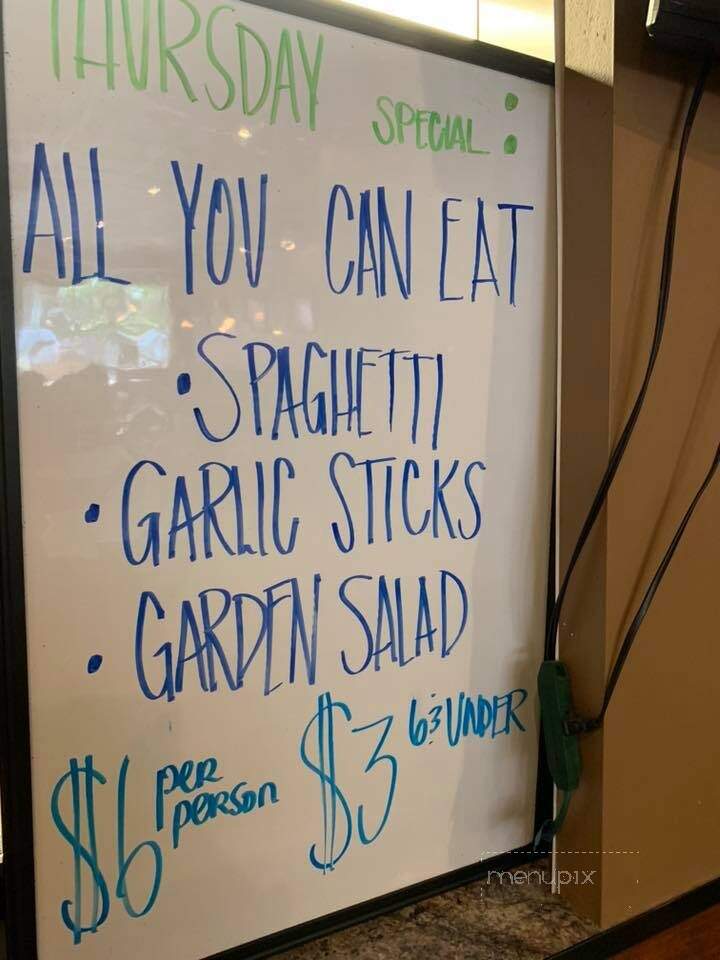 THURSDAY SPECIAL:
ALL YOU CAN EAT
• SPAGHETTI
• GARLIC STICKS
• GARDEN SALAD
$6 per person $3 6 & UNDER
menupix